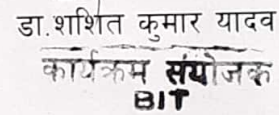 डा. शशित कुमार यादव
कार्यक्रम संयोजक
BIT